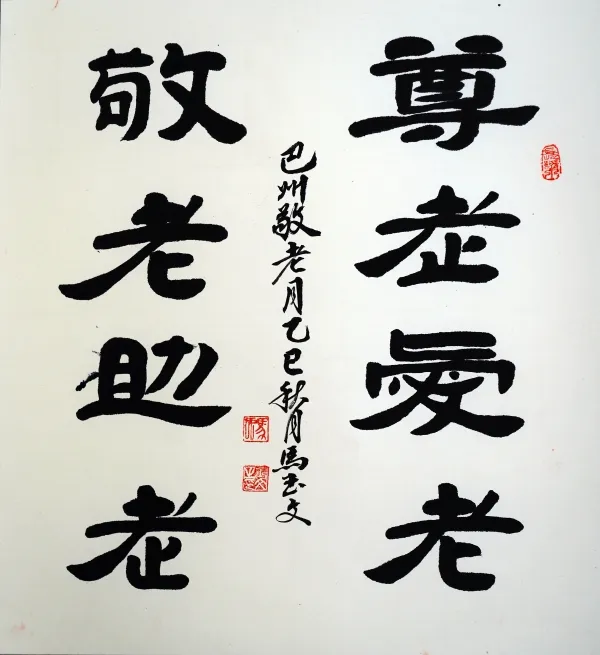 尊老愛老
敬老助老
巴州敬老月乙巳秋月馬文